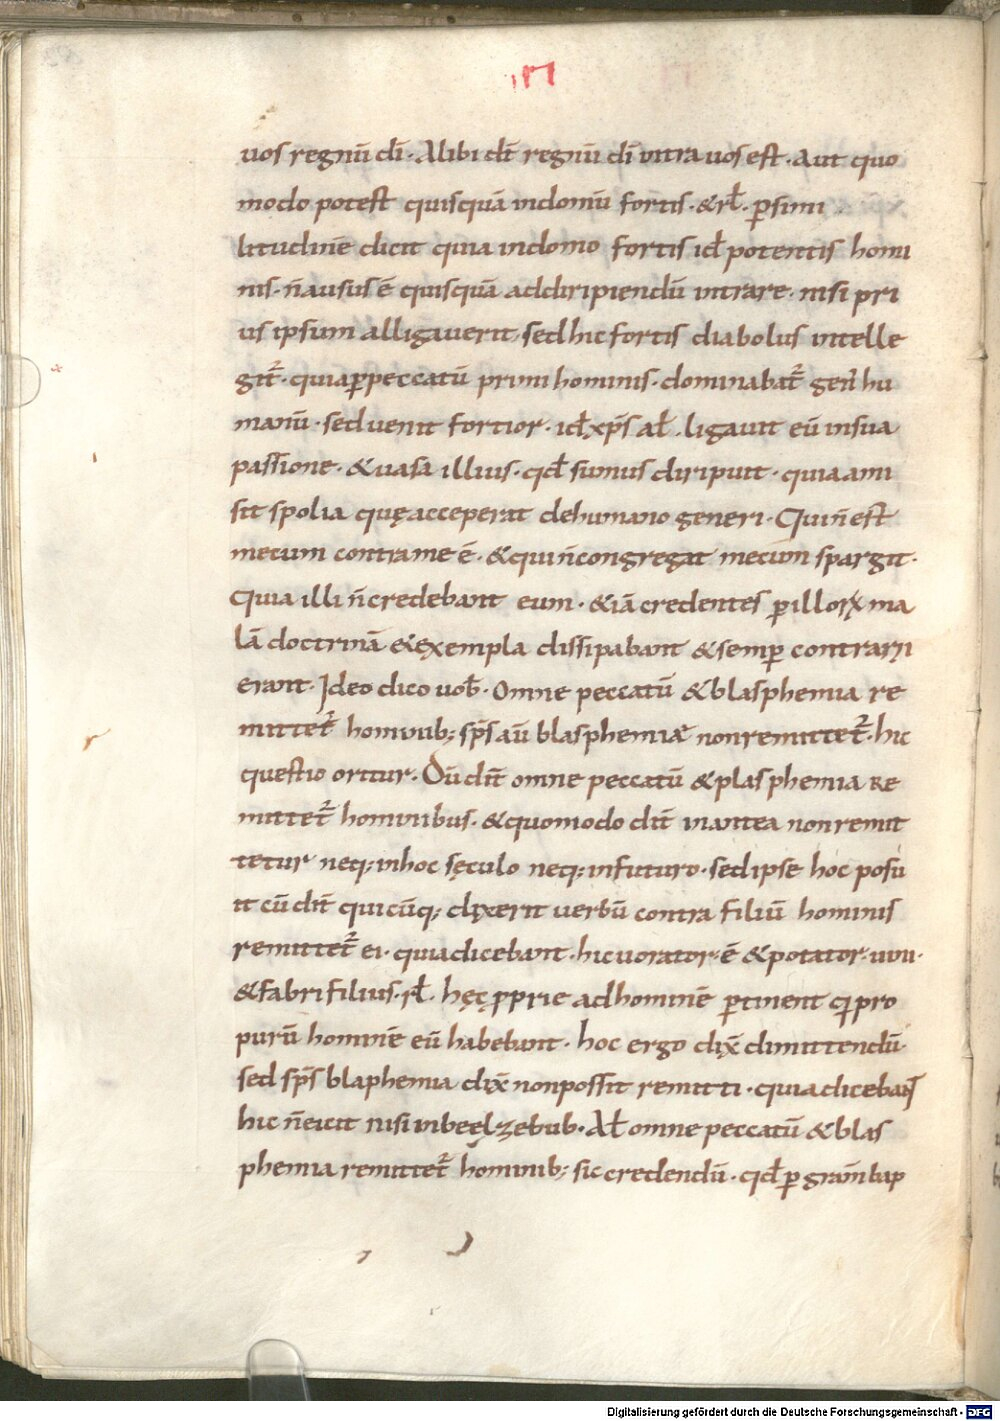 uos regnū dī. Alibi dīt regnū dī intra uos est. Aut quo
modo potest quisquā indomū fortis. &rł. p̱ simi
litudinē dicit quia indomo fortis idł potentis homi
nis. n̄ ausus ē quisquā addiripiendū intrare. nisi pri
us ipsum alligauerit, sed hic fortis diabolus intelle
git᷑. quia p̱peccatū primi hominis. dominabat᷑ gen̄ hu
manū. sed uenit fortior. idł xp̄s ał. ligauit eū insua
passione. & uasa illius. qđ sumus diripuit. quia ami
sit spolia quę acceperat dehumano generi. Qui n̄ est
mecum contra me ē. & qui n̄ congregat mecum spargit.
Quia illi n̄ credebant eum. & iā credentes p̱ illoꝝ ma
lā doctrinā & exempla dissipabant & semp̱ contrarii
erant. Ideo dico uob̄. Omne peccatū & blasphemia re
mittet᷑ hominib; sp̄s aū blasphemia nonremittet᷑. hic
questio oritur. Dū dīt omne peccatū & plasphemia re
mittet᷑ hominibus. & quomodo dīt inantea nonremit
tetur neq; inhoc sęculo neq; infuturo. sed ipse hoc posu
it cū dīt quicūq; dixerit uerbū contra filiū hominis
remittet᷑ ei. quia dicebant. hic uorator ē & potator uini.
& fabri filius. rł. hęc p̱prie ad hominē p̱tinent q̄ pro
purū hominē eū habebant. hoc ergo dix̄ dimittendū.
sed sp̄s blaphemia dix̄ nonpossit remitti. quia dicebant
hic n̄ eicit nisi inbeelzebub. Ał omne peccatū & blas
phemia remittet᷑ hominib; sic credendū. qđ p̱ grām bap